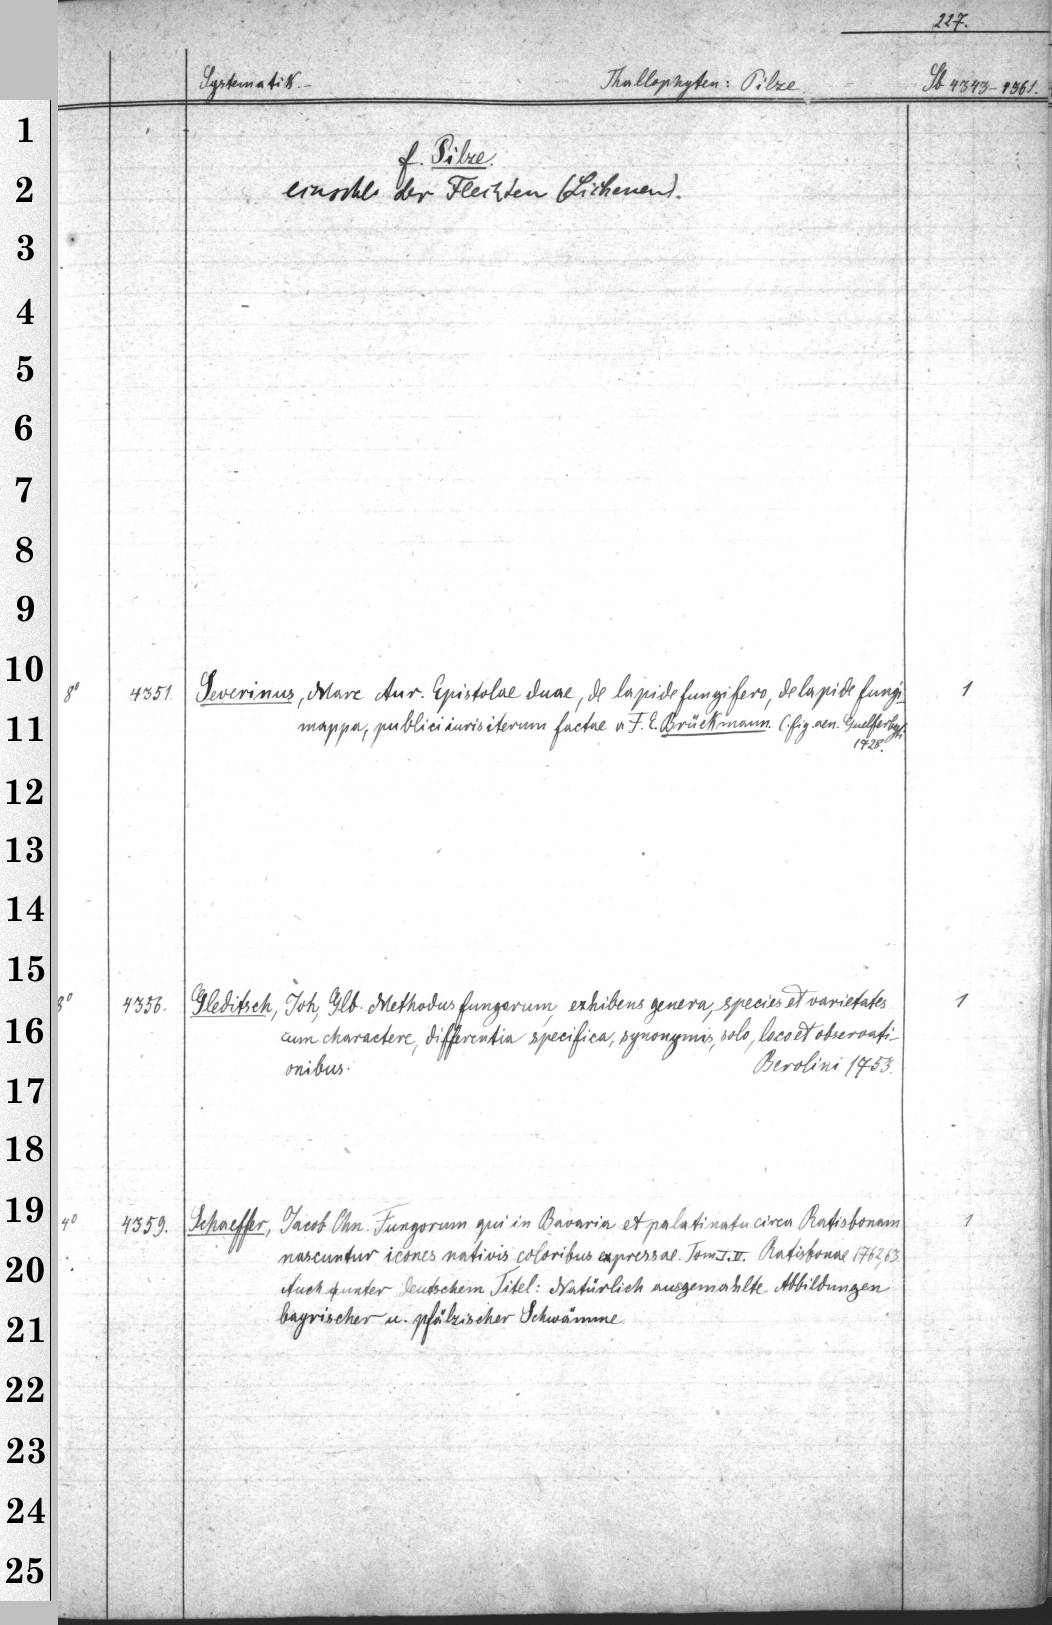 227.
Systematik. Thallophyten: Pilze Sb 4343-4361.
1
f. Pilze.
2
einschl. der Flechten (Lichenen).
3
4
5
6
7
8
9
10
8° 4351. Severinus, Marc Aur. Epistolae duae, de lapide fungifero, de lapide fungi- 1
11
mappa, publici iuris iterum factae a F. E. Brückmann. C. fig. aen. Guelferbyt.
1728.
12
13
14
15
8° 4356. Gleditsch, Joh. Glb. Methodus fungorum, exhibens genera, species et varietates 1
16
cum charactere, differentia specifica, synonymis, solo, loco et observati-
onibus. Berolini 1753.
17
18
19
4° 4359. Schaeffer, Jacob Chn. Fungorum qui in Bavaria et palatinatu circa Ratisbonam 1
nascuntur icones nativis coloribus expressae. Tom I. II. Ratisbonae 1762,63
20
Auch unter deutschem Titel: Natürlich ausgemahlte Abbildungen
21
bayrischer u. pfälzischer Schwämme
22
23
24
25